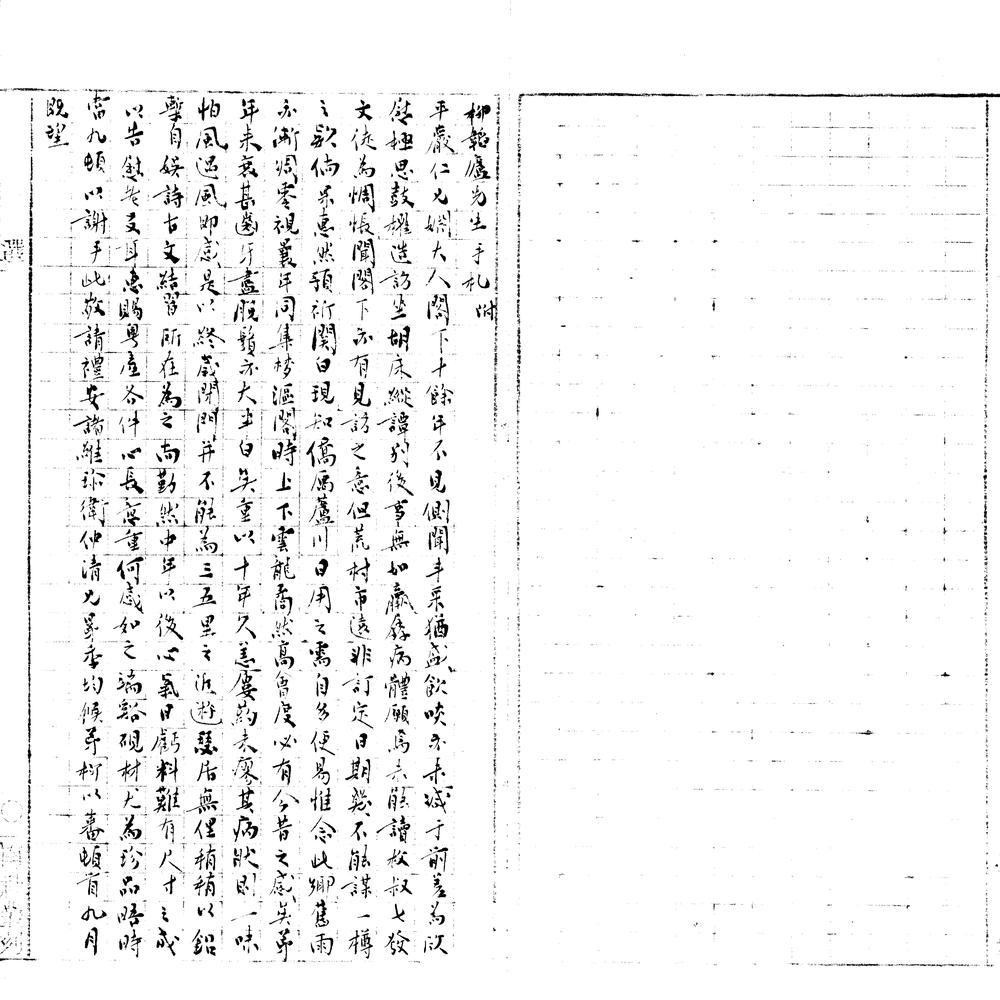 柳韜廬先生手札 附
平嚴仁兄姻大人閣下十餘年不見側聞丰采猶盛飲啖亦未減于前差為欣
慰極思鼓櫂造訪坐胡床縱譚別後事無如羸孱病體願焉未能讀枚叔七發
文徒為惆悵聞閣下亦有見訪之意但荒村市遠非訂定日期幾不能謀一樽
之歡倘果惠然預祈関白現知僑居蘆川日用之需自多便易惟念此鄉舊雨
亦漸凋零視曩年同集梦漚閣時上下雲龍喬然高會度必有今昔之感矣弟
年未衰甚齒牙盡脫鬚亦大半白矣重以十年久恙屢葯未瘳其病狀則一味
怕風遇風即感是以終歲閉門并不能為三五里之近遊瑟居無俚稍稍以鉛
槧自娛詩古文結習所在為之尚勤然中年以後心氣日虧料難有尺寸之成
以告慰老友耳惠賜粤產各件心長意重何感如之端谿硯材尤為珍品晤時
當九頓以謝手此敬請禮安諸維珍衛仲清兄暴季均候弟柳以蕃頓首九月
既望